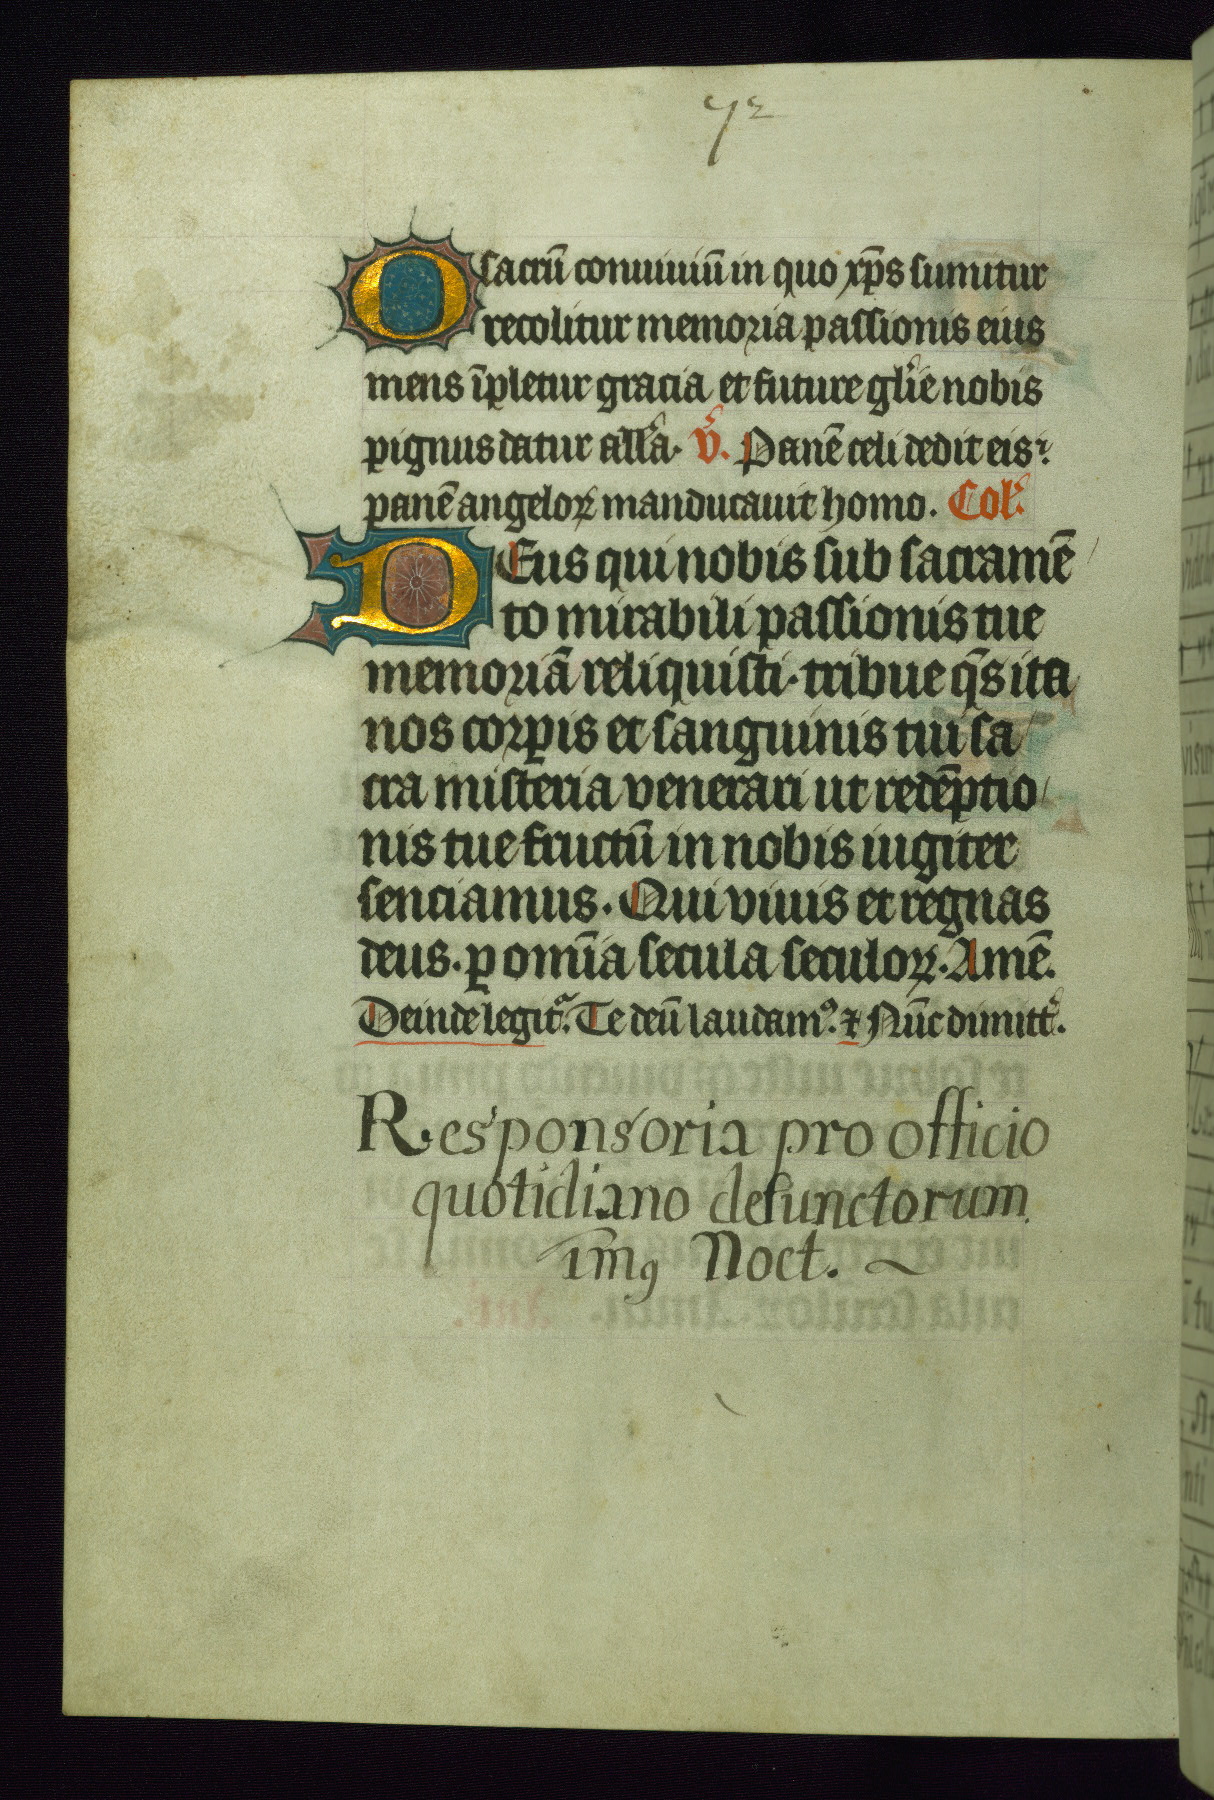 72
O sacrū conuiuiuū in quo xp̄s sumitur
recolitur memoria passionis eius
mens īpletur gracia et future gl'ie nobis
pignus datur all'a. v̕. Panē celi dedit eis.
panē angeloꝝ manducauit homo. Col'.
DEus qui nobis sub sacramē
to mirabili passionis tue
memoriā reliquisti. tribue q̄s ita
nos corꝑis et sanguinis tui sa
cra misteria venerari ut redēptio
nis tue fructū in nobis iugiter
senciamus. Qui viuis et regnas
deus. ꝑ omīa secula seculoꝝ. Amē.
Deinde legit͛. Te deū laudamꝰ. ⁊ Nūc dimitt̕.
Responsoria pro officio
quotidiano defunctorum.
im̄ꝯ Noct.